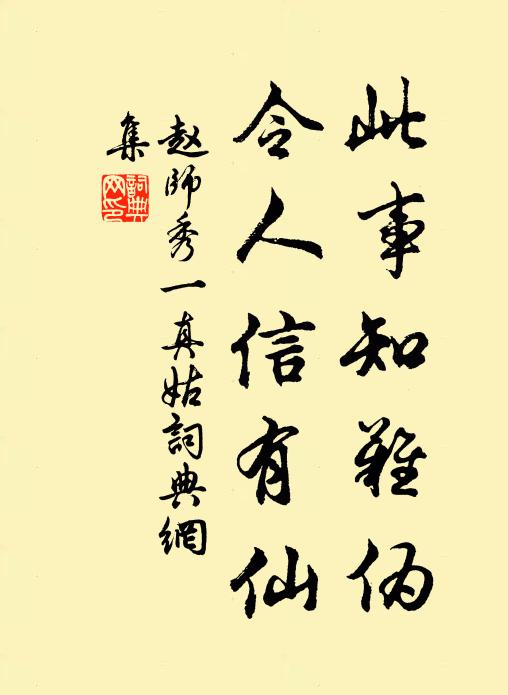 此事知難伪
令人信有仙
赵師秀一真姑詞典網
集
詞典网印